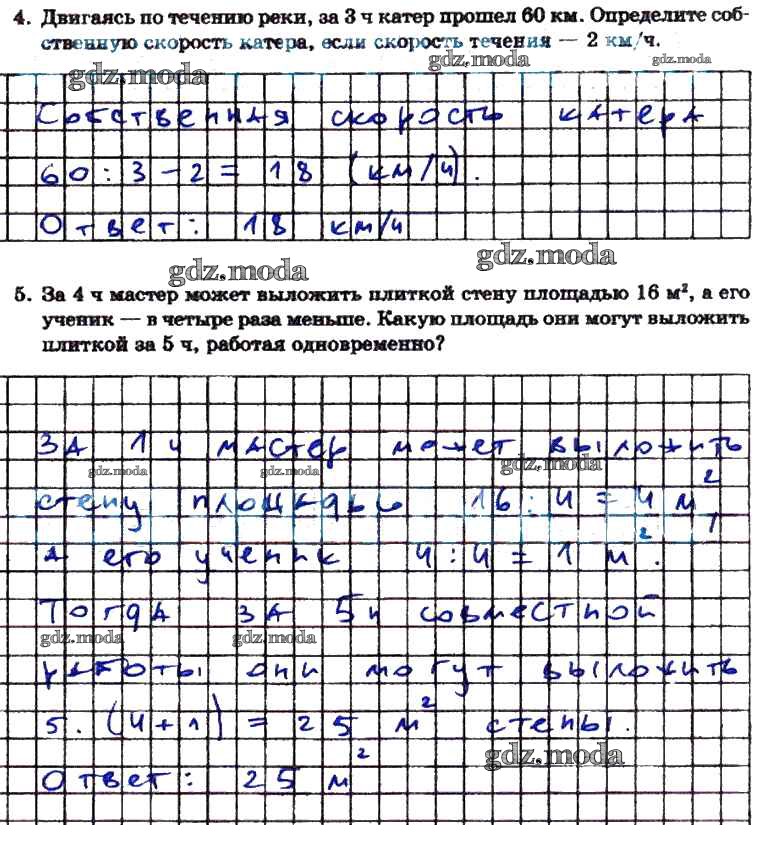 4. Двигаясь по течению реки, за 3 ч катер прошел 60 км. Определите соб-
ственную скорость катера, если скорость течения — 2 км/ч.
gdz.moda
gdz.moda
gdz.moda
Собственная скорость катера
60 : 3 – 2 = 18 (км/ч).
Ответ: 18 км/ч
gdz.moda
gdz.moda
5. За 4 ч мастер может выложить плиткой стену площадью 16 м², а его
ученик — в четыре раза меньше. Какую площадь они могут выложить
плиткой за 5 ч, работая одновременно?
За 1 ч мастер может выложить
gdz.moda
gdz.moda
gdz.moda
стену площадью 16 : 4 = 4 м²,
а его ученик 4 : 4 = 1 м².
Тогда за 5ч совместной
gdz.moda
gdz.moda
работы они могут выложить
5 . (4 + 1) = 25 м² стены.
gdz.moda
Ответ: 25 м²